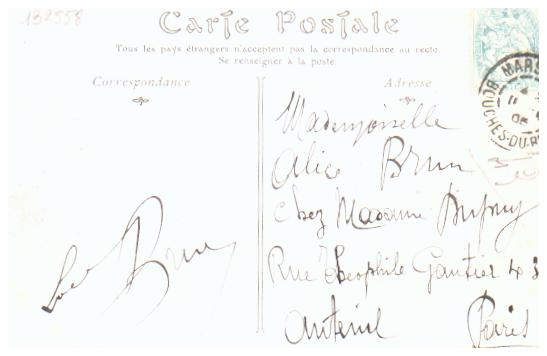 132558
Carte Postale
Tous les pays étrangers n'acceptent pas la correspondance au recto.
Se renseigner à la poste.
Correspondance
Adresse
MARS
BOUCHES-DU-R
11
Mademoiselle
Alice Brun
Chez Madame Dupuy
Rue Theophile Gautier 43
Auteuil Paris
Brun